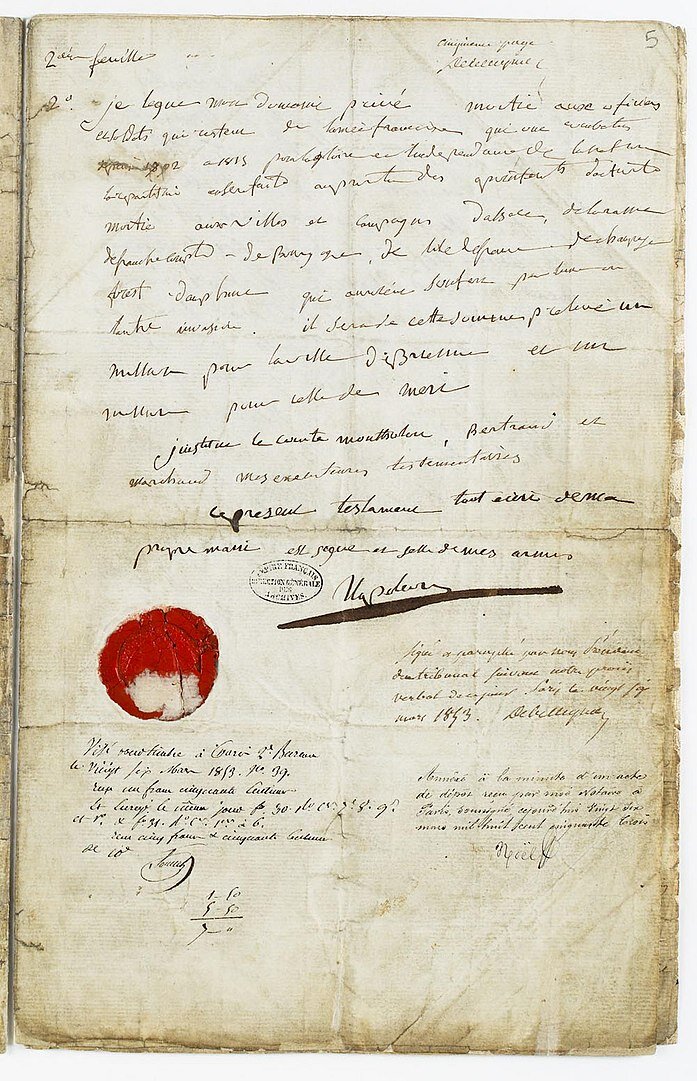 5
cinquieme page
2eme feuille
2°. je legue mon domaine privé moitié aux officiers
et soldats qui restent de l'armée française qui ont combattu
1792 a 1815 pour la gloire et l'independance de la nation
la repartition en sera faite au prorata des
moitié aux villes et campagnes d'alsace, de loraine
de franche compté - de Bourgogne, de l'ile de france de champagne
forest dauphiné qui auraient souffert par l'une ou
l'autre invasion. il sera de cette somme prelevé un
million pour la ville de Brienne et un
million pour celle de meri
j'institue le comte montholon, Bertrand et
marchand mes executeurs testamentaires
ce present testament tout ecrit de ma
propre main est signé et scellé de mes armes
Napoleon
EMPIRE FRANÇAIS
DIRECTION GÉNÉRALE
DES
ARCHIVES.
Signé et paraphé par nous Président
du tribunal suivant notre procès
verbal de ce jour Paris le vingt six
mars 1853.
Visé pour timbre à Paris 2e Bureau
le Vingt six Mars 1853. No 39.
reçu un franc cinquante centimes
Et Enregé le même jour fo 30. Ro Cs 7. 8. 9.
et Vo
reçu cinq francs & cinquante centimes
Annexé à la minute d'un acte
de dépôt reçu par moi Notaire à
Paris, soussigné cejourd'hui vingt six
mars mil huit cent cinquante trois
Noël
1-50
5-50
7 - "